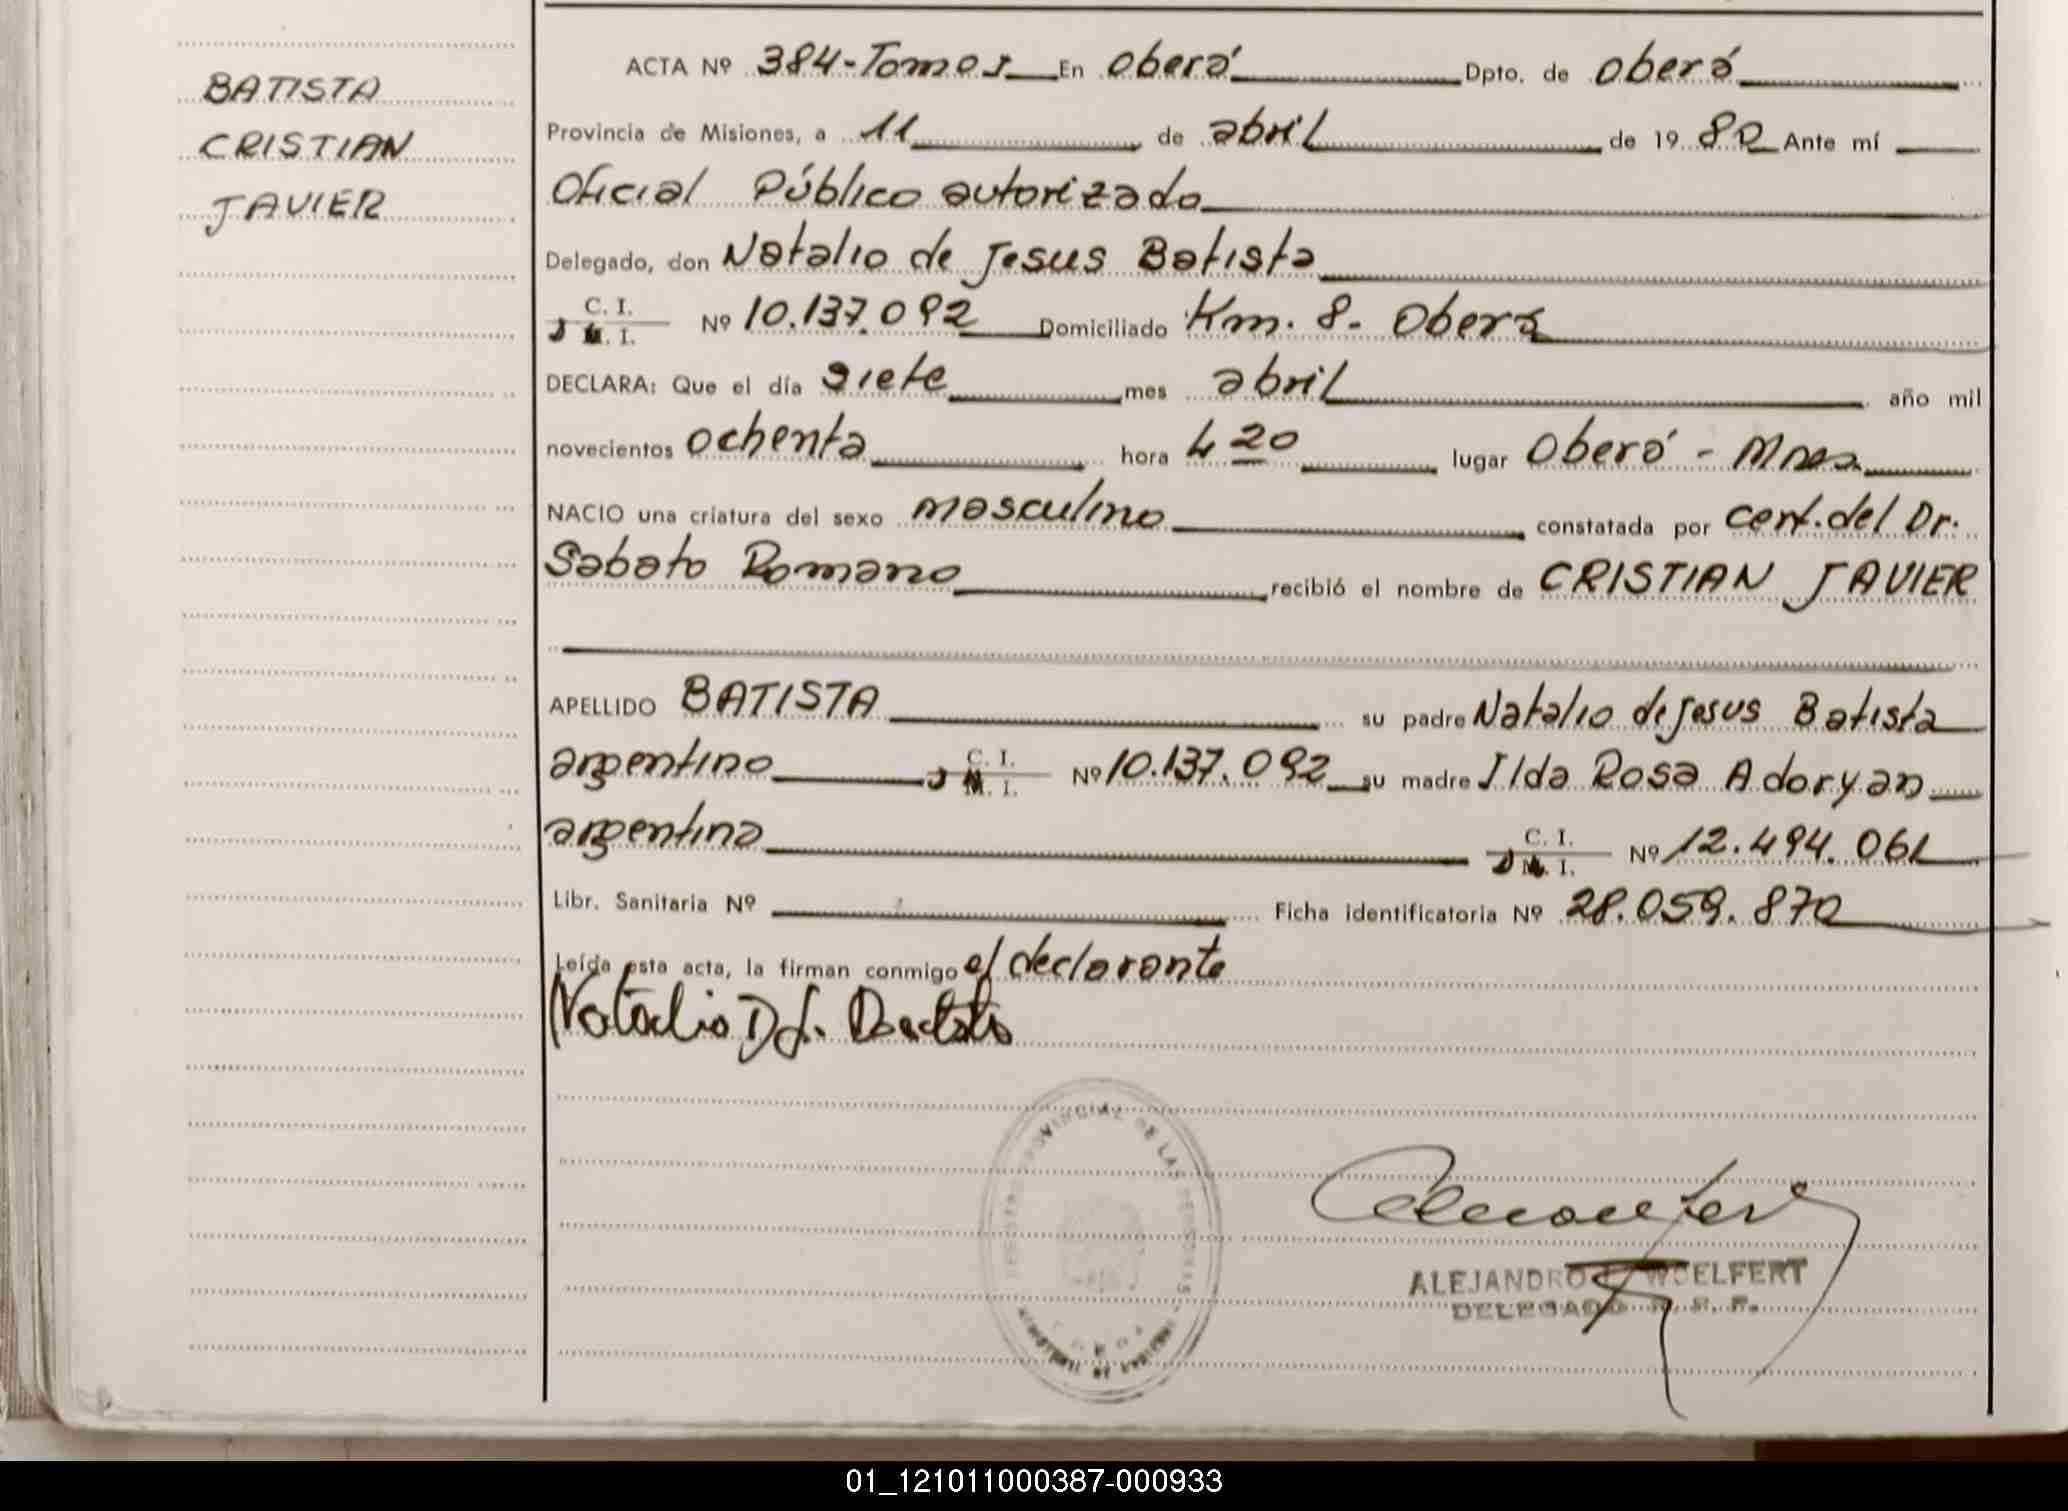 BATISTA
CRISTIAN
JAVIER
ACTA Nº 384-Tomos En Oberá Dpto. de Oberá
Provincia de Misiones, a 11 de abril de 1980 Ante mí
Oficial Público autorizado
Delegado, don Natalio de Jesus Batista
C. I.
D M. I. Nº 10.137.092 Domiciliado Km. 8. Oberá
DECLARA: Que el día siete mes abril año mil
novecientos ochenta hora 4 20 lugar Oberá - Mnes.
NACIO una criatura del sexo masculino constatada por cert. del Dr.
Sabato Romano recibió el nombre de CRISTIAN JAVIER
APELLIDO BATISTA su padre Natalio de Jesus Batista
argentino C. I. D M. I. Nº 10.137.092 su madre Ilda Rosa Adoryan
argentina C. I. D M. I. Nº 12.494.061
Libr. Sanitaria Nº Ficha identificatoria Nº 28.059.870
Leída esta acta, la firman conmigo el declarante
Natalio D J. Batista
PROVINCIAL DE LAS PERSONAS
ALEJANDRO WOELFERT
DELEGADO R. P.
01_121011000387-000933